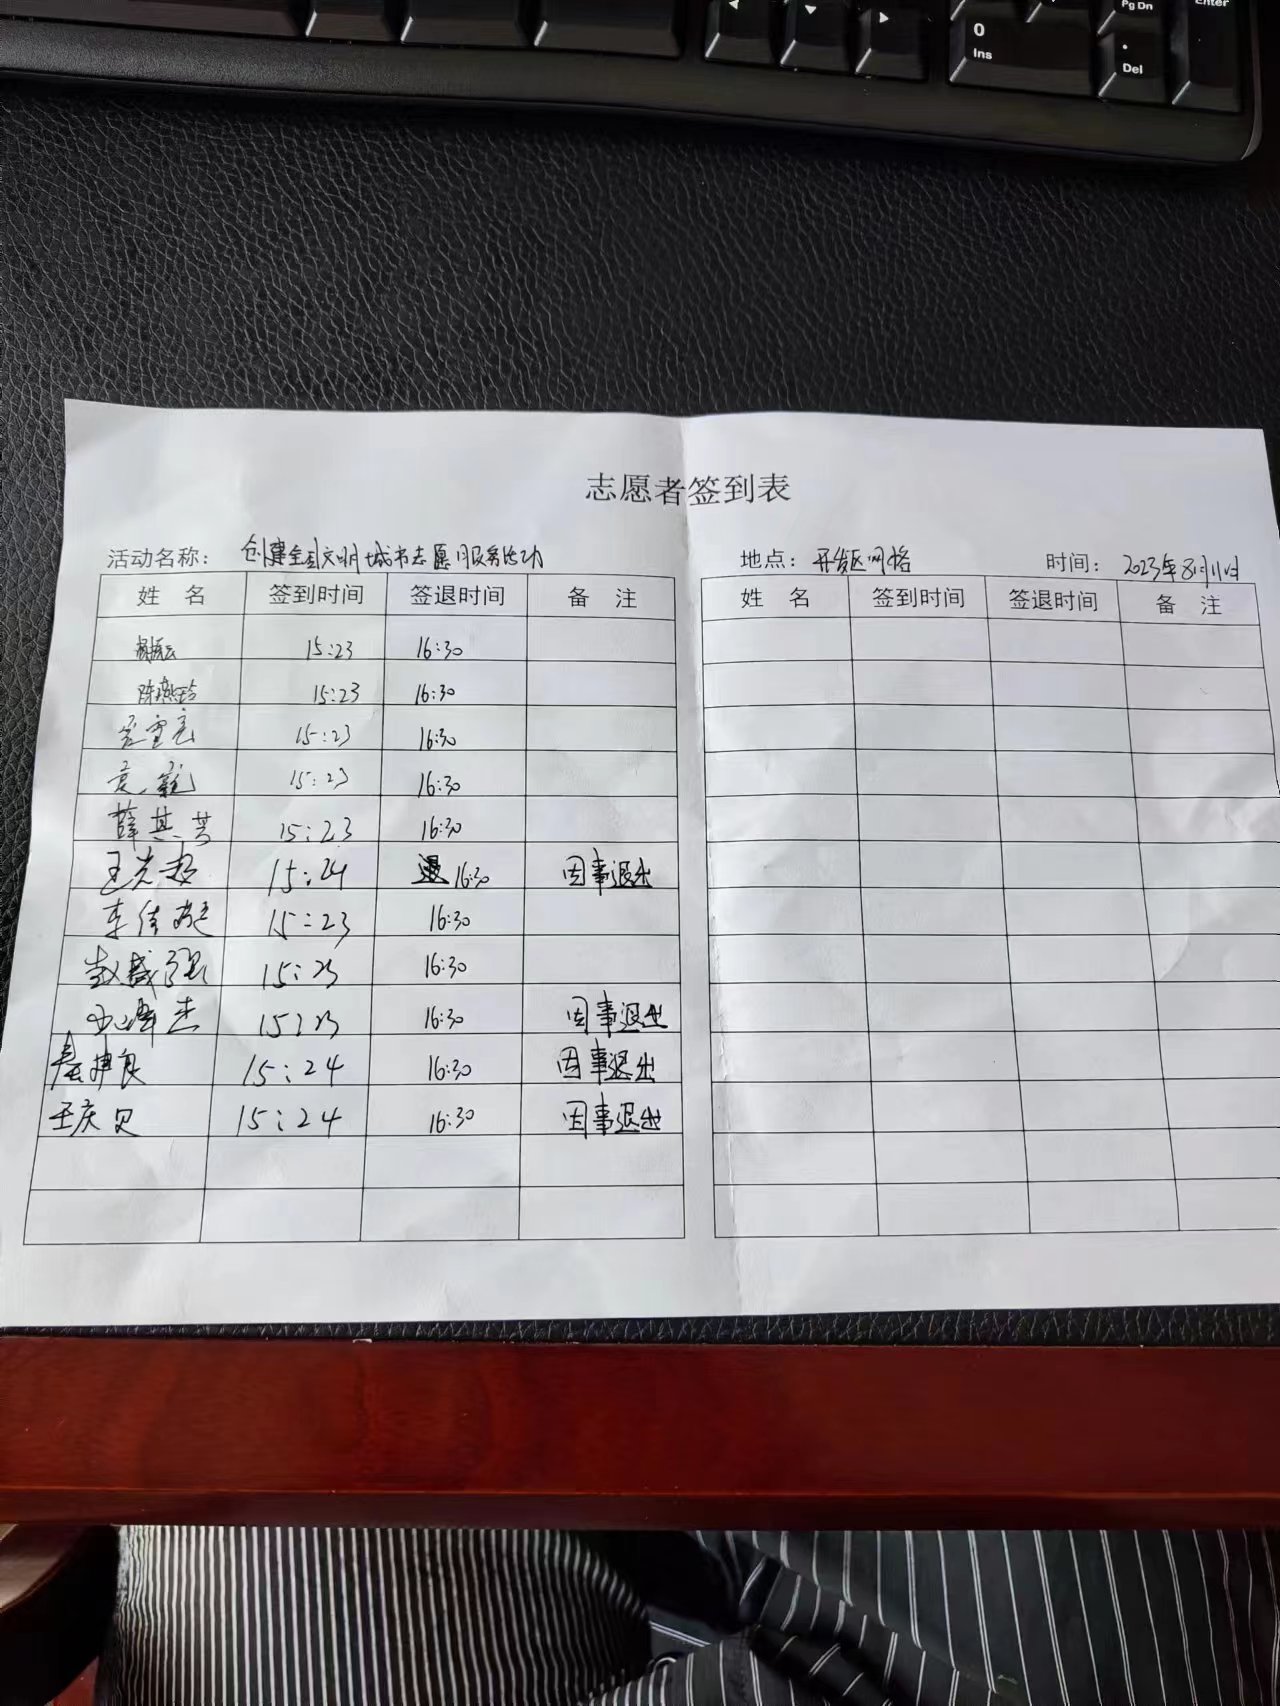 Pg Dn
Enter
0
Ins
.
Del
志愿者签到表
活动名称： 创建全国文明城市志愿服务活动 地点：开发区网格 时间：2023年8月11日
姓 名 签到时间 签退时间 备 注 姓 名 签到时间 签退时间 备 注
15:23 16:30
陈燕玲 15:23 16:30
15:23 16:30
袁 15:23 16:30
薛其芳 15:23 16:30
王光超 15:24 退 16:30 因事退出
李佳 15:23 16:30
赵盛强 15:23 16:30
杰 15:23 16:30 因事退出
良 15:24 16:30 因事退出
王庆贝 15:24 16:30 因事退出